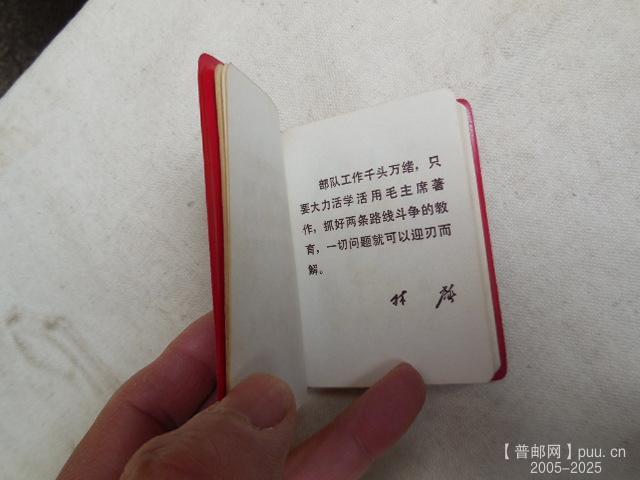 部队工作千头万绪，只
要大力活学活用毛主席著
作，抓好两条路线斗争的教
育，一切问题就可以迎刃而
解。
林 彪
【普邮网】puu.cn
2005-2025